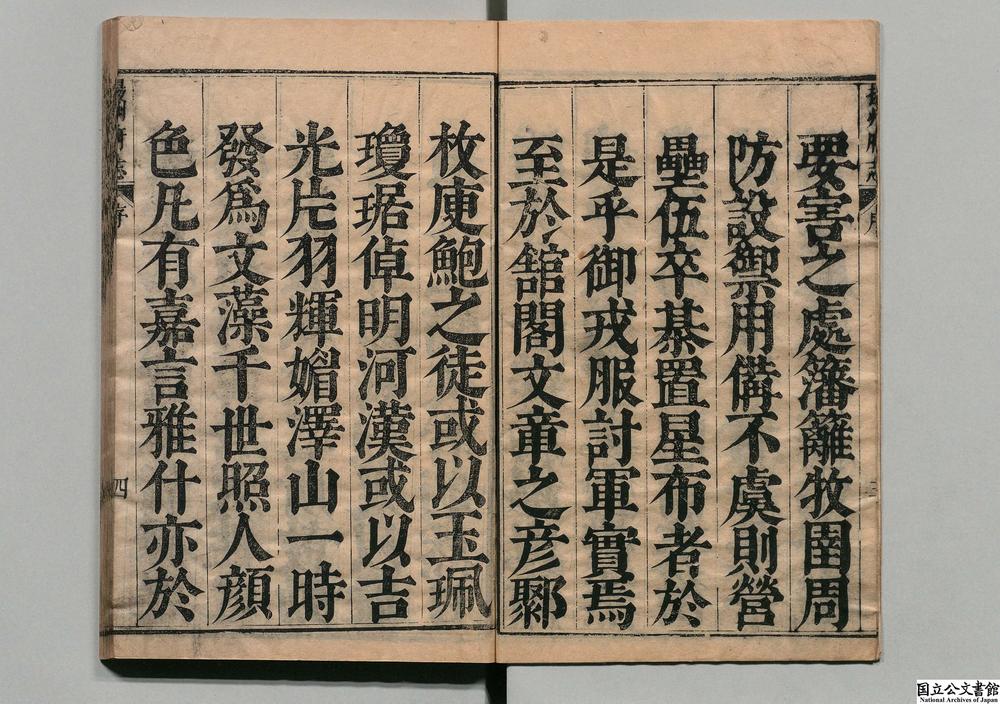 要害之處籓籬牧圉周
防設禦用備不虞則營
壘伍卒棊置星布者於
是乎御戎服討軍實焉
至於舘閣文章之彥鄹
枚庾鮑之徒或以玉珮
瓊琚倬明河漢或以吉
光片羽輝媚澤山一時
發爲文藻千世照人顏
色凡有嘉言雅什亦於
序
四
国立公文書館
National Archives of Japan